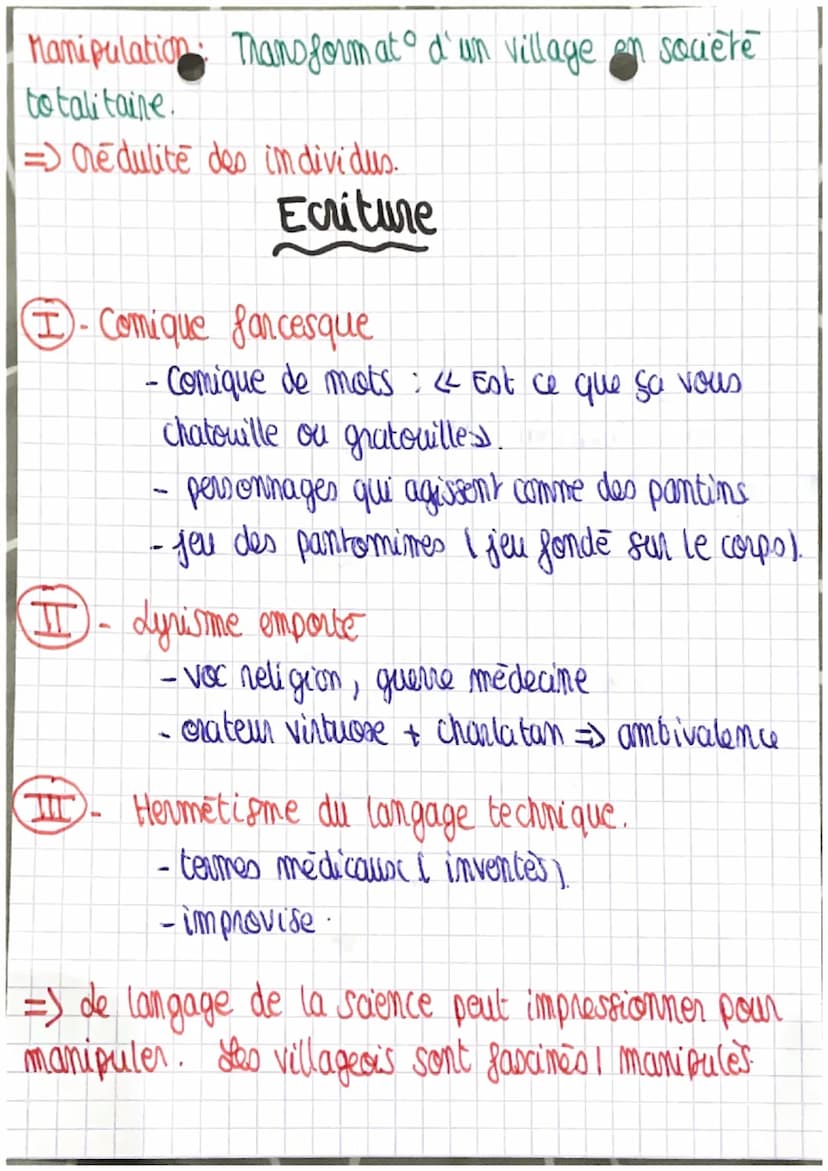 Manipulation : Transformat° d'un village en société
totalitaire.
=> Crédulité des individus.
Ecriture
I - Comique farcesque
- Comique de mots : « Est ce que ça vous
chatouille ou gratouille».
- personnages qui agissent comme des pantins
- jeu des pantomimes ( jeu fondé sur le corps).
II - Lyrisme emporté
- voc religion, guerre médecine
- orateur virtuose + charlatan => ambivalence
III - Hermétisme du langage technique.
- termes médicaux ( inventés)
- improvise.
=> Le langage de la science peut impressionner pour
manipuler. Les villageois sont fascinés / manipulés.